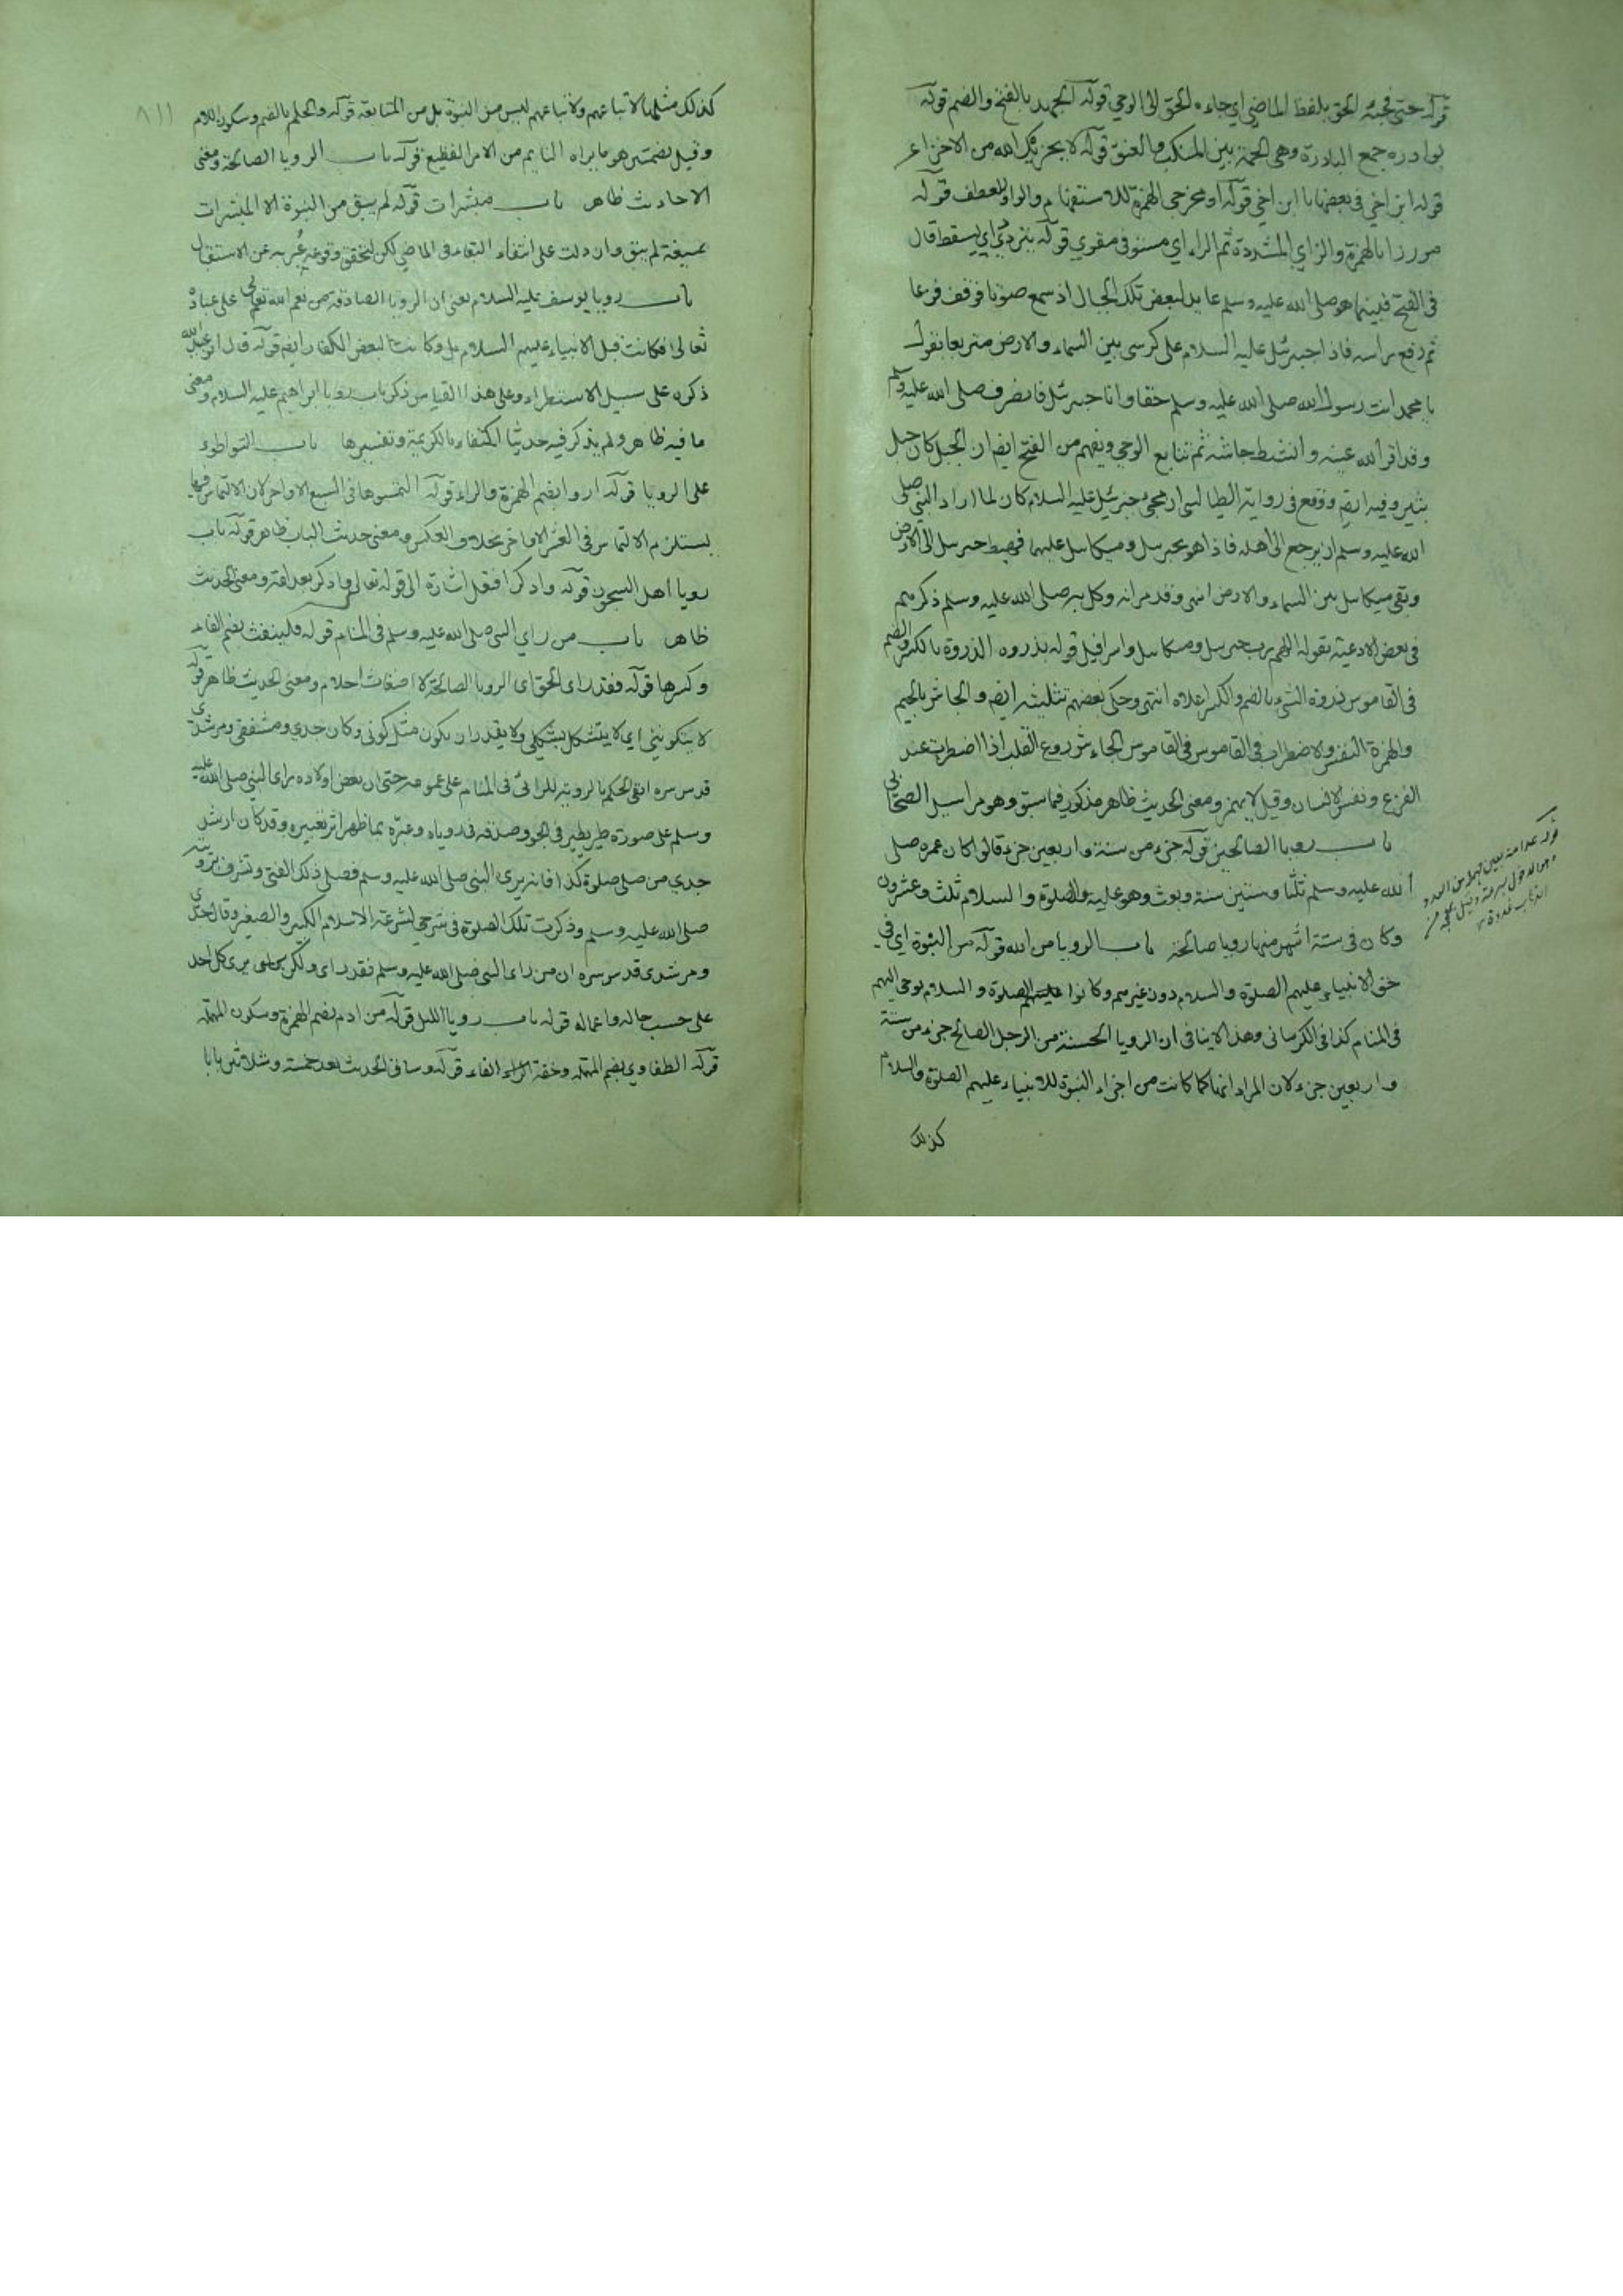 قوله حتى فجئه الحق بلفظ الماضي اي جاءه الحق اي الوحي قوله الجهد بالفتح والضم قوله
بوادره جمع البادرة وهي لحمة بين المنكب والعنق قوله لا يحزنك الله من الاخزاء
قوله ابن اخي في بعضها يا ابن اخي قوله او مخرجي الهمزة للاستفهام والواو للعطف قوله
موزرا بالهمزة والزاي المشددة ثم الراء اي مستوفى مقوي قوله يتردى اي يسقط قال
في الفتح فبينما هو صلى الله عليه وسلم عامد لبعض تلك الجبال اذ سمع صوتا فوقف فزعا
ثم رفع راسه فاذا جبرئيل عليه السلام على كرسي بين السماء والارض متربعا يقول
يا محمد انت رسول الله صلى الله عليه وسلم حقا وانا جبرئيل فانصرف صلى الله عليه وسلم
وقد اقر الله عينه وانشط جاشه ثم تتابع الوحي ويفهم من الفتح ايضا ان الجبل كان جبل
ثبير وفيه ايضا ووقع في رواية الطيالسي ان مجئ جبرئيل عليه السلام كان لما اراد النبي صلى
الله عليه وسلم ان يرجع الى اهله فاذا هو بجبريل وميكائيل عليهما فهبط جبريل الى الارض
وبقي ميكائيل بين السماء والارض انتهى وقد مر انه وكل به صلى الله عليه وسلم ذكرهم
في بعض الادعية بقوله اللهم رب جبريل وميكائيل واسرافيل قوله بذروه الذروة بالكسر والضم
في القاموس ذروة الشيء بالضم والكسر اعلاه انتهى وحكى بعضهم تثليثه ايضا والجاش بالجيم
والهمزة النفس والاضطراب في القاموس في القاموس الجاش روع القلب اذا اضطرب عند
الفزع ونفس الانسان وقيل لا يهمز ومعنى الحديث ظاهر مذكور فيما سبق وهو مراسيل الصحابي
باب رويا الصالحين قوله جزء من ستة واربعين جزء قالوا كان عمره صلى
الله عليه وسلم ثلثا وستين سنة وبعث وهو عليه الصلوة والسلام ثلث وعشرون
وكان في ستة اشهر منها رويا صالحة باب الرويا من الله قوله من النبوة اي في
حق الانبياء عليهم الصلوة والسلام دون غيرهم وكانوا عليهم الصلوة والسلام يوحى اليهم
في المنام كذا في الكرماني وهذا لا ينافي ان الرويا الحسنة من الرجل الصالح جزء من ستة
واربعين جزء لان المراد انها كما كانت من اجزاء النبوة للانبياء عليهم الصلوة والسلام
كذلك
قوله عدا منه بعين مهملة من العدو
وهو الذهاب بسرعة وقيل بمعجمة من
الذهاب غدوة
٨١١
كذلك مثلها لاتباعهم ولاتباعهم ليس من النبوة بل من المتابعة قوله والحلم بالضم وسكون اللام
وقيل بضمتين هو ما يراه النايم من الامر الفظيع قوله باب الرويا الصالحة ومعنى
الاحاديث ظاهر باب مبشرات قوله لم يبق من النبوة الا المبشرات
بصيغة لم يبق وان دلت على انتفاء البقاء في الماضي لكن لتحقق وقوعه عبر به عن الاستقبال
باب رويا يوسف عليه السلام يعني ان الرويا الصادقة من نعم الله تعالى على عباده
تعالى فكانت قبل الانبياء عليهم السلام بل وكانت لبعض الكفار ايضا قوله قال ابو عبد الله
ذكره على سبيل الاستطراد وعلى هذا القياس ذكر باب رويا ابراهيم عليه السلام ومعنى
ما فيه ظاهر ولم يذكر فيه حديثا اكتفاء بالكريمة وتفسيرها باب التواطوء
على الرويا قوله اروا بضم الهمزة والراء قوله التمسوها في السبع الاواخر لان الالتماس فيها
يستلزم الالتماس في العشر الاواخر بخلاف العكس ومعنى حديث الباب ظاهر قوله باب
رويا اهل السجون قوله وادكر افتعل اشارة الى قوله تعالى وادكر بعد امة ومعنى الحديث
ظاهر باب من راي النبي صلى الله عليه وسلم في المنام قوله فلينفث بضم الفاء
وكسرها قوله فقد راى الحق اي الرويا الصالحة لا اضغاث احلام ومعنى الحديث ظاهر قوله
لا يتكونني اي لا يتشكل بشكلي ولا يقدر ان يكون مثل كوني وكان جدي ومشفقي ومرشدي
قدس سره ابقى الحكم بالروية للرائي في المنام على عمومه حتى ان بعض اولاده راى النبي صلى الله عليه
وسلم على صورة طير يطير في الجو وصدقه في روياه وعبره بما ظهر اثر تعبيره وقد كان ارشد
جدي من صلى صلوة كذا فانه يرى النبي صلى الله عليه وسلم فصلى ذلك الفتى وتشرف برويته
صلى الله عليه وسلم وذكرت تلك الصلوة في شرحي لشرعة الاسلام الكبير والصغير وقال جدي
ومرشدي قدس سره ان من راى النبي صلى الله عليه وسلم فقد راى ولكن يرى كل احد
على حسب حاله واعماله قوله باب رويا الليل قوله من ادم بضم الهمزة وسكون المهملة
قوله الطفاوي بضم المهملة وخفة الفاء قوله وساق الحديث بعد خمسة وثلاثين بابا